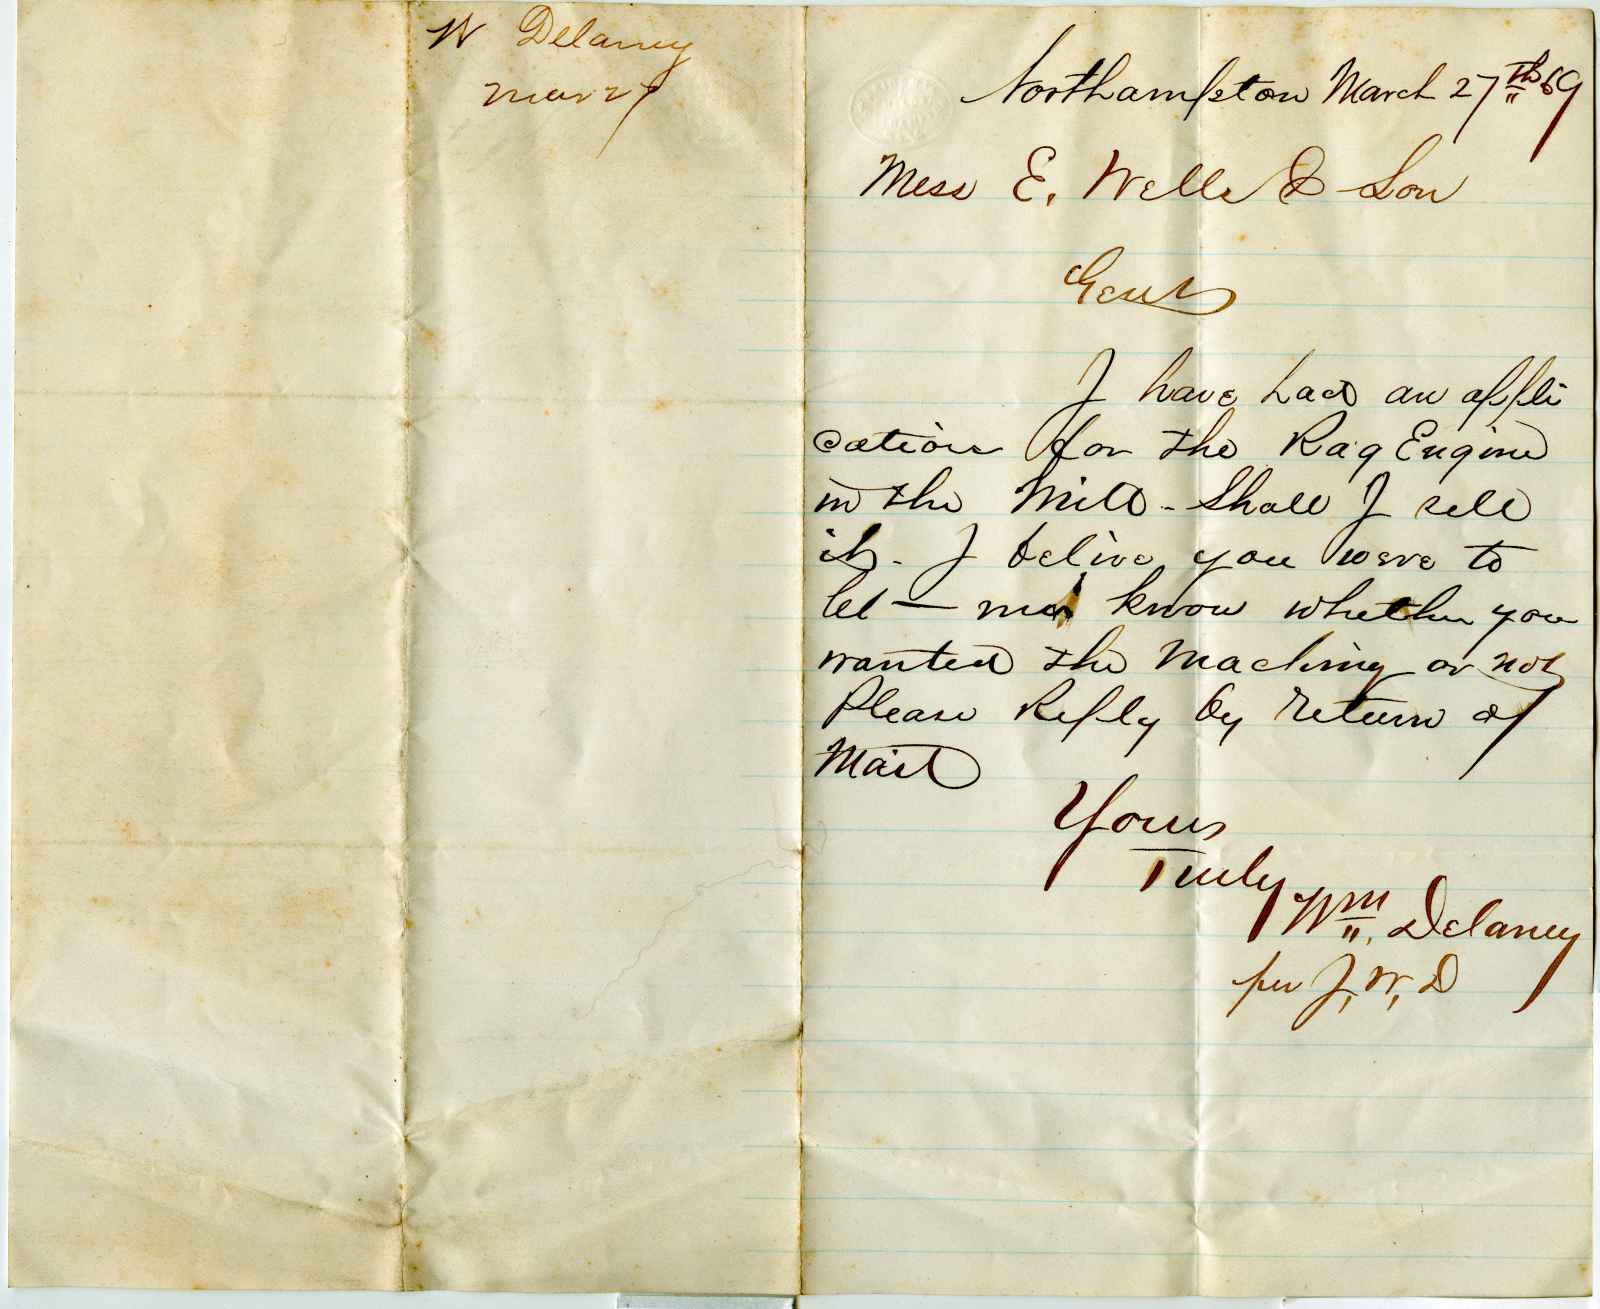 W Delaney
Mar 27
Northampton March 27th 69
Mess E. Wells & Son
Gents
I have had an appli
cation for the Rag Engine
in the Mill - Shall I sell
it - I belive you were to
let - me know whether you
wanted the Machiny or not
Please Reply by return of
Mail
Yours
Truly
Wm. Delaney
per J, W, D